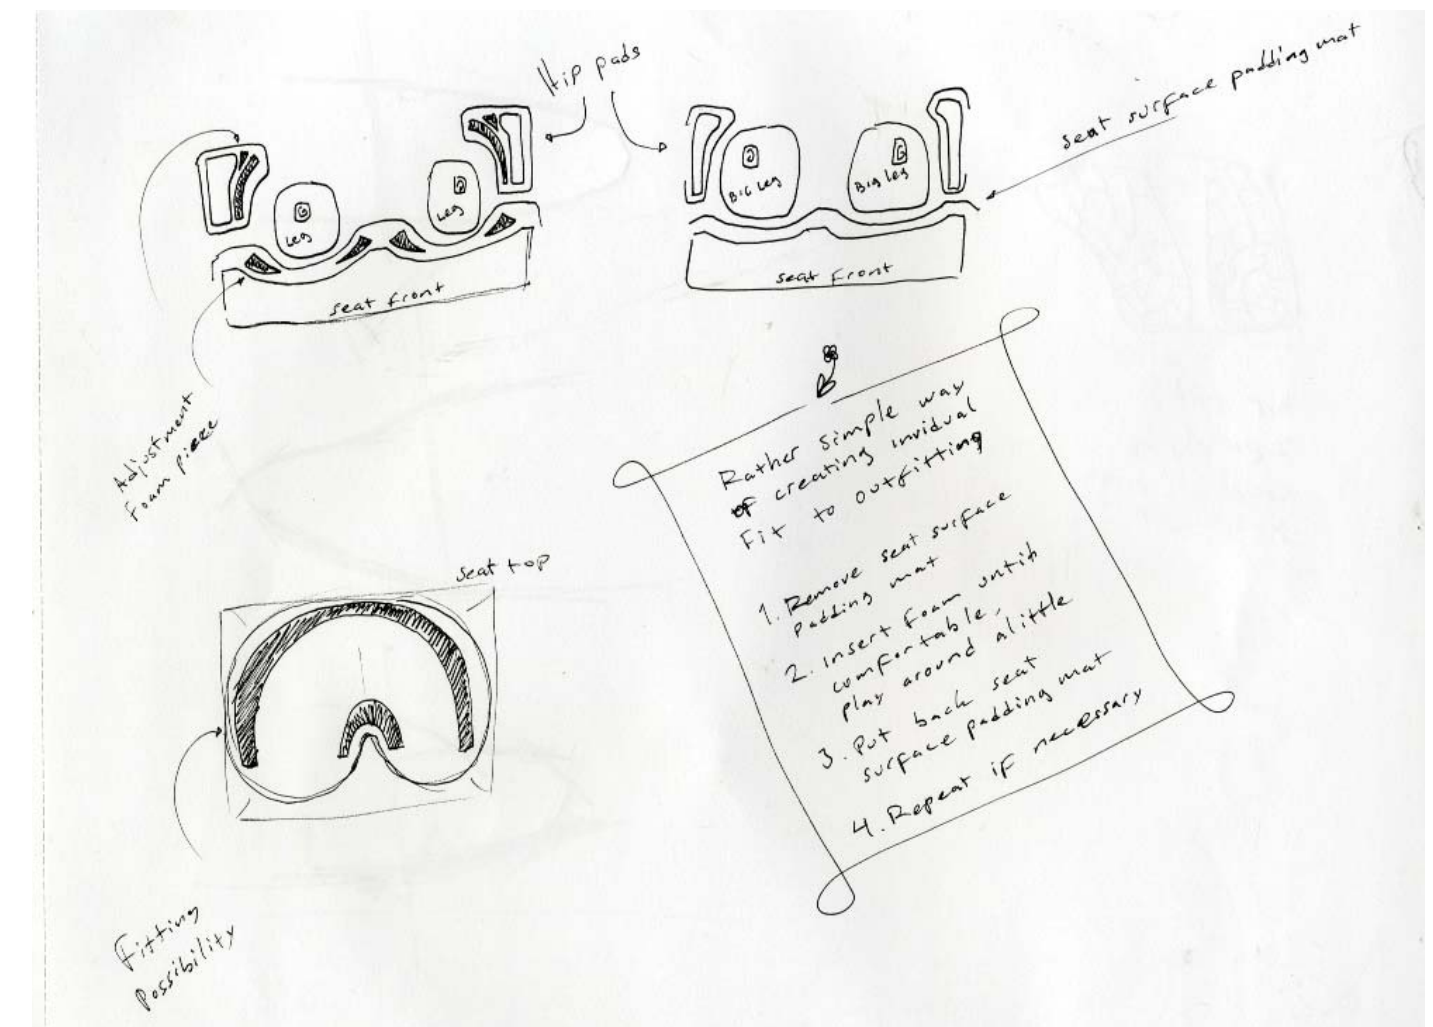 Hip pads
seat surface padding mat
Leg
Leg
seat front
BIG Leg
Big Leg
seat front
Adjustment
Foam pieze
seat top
Fitting
Possibility
Rather simple way
of creating invidual
Fit to outfitting
1. Remove seat surface
padding mat
2. insert foam untib
comfortable,
play around alittle
3. Put back seat
surface padding mat
4. Repeat if necessary